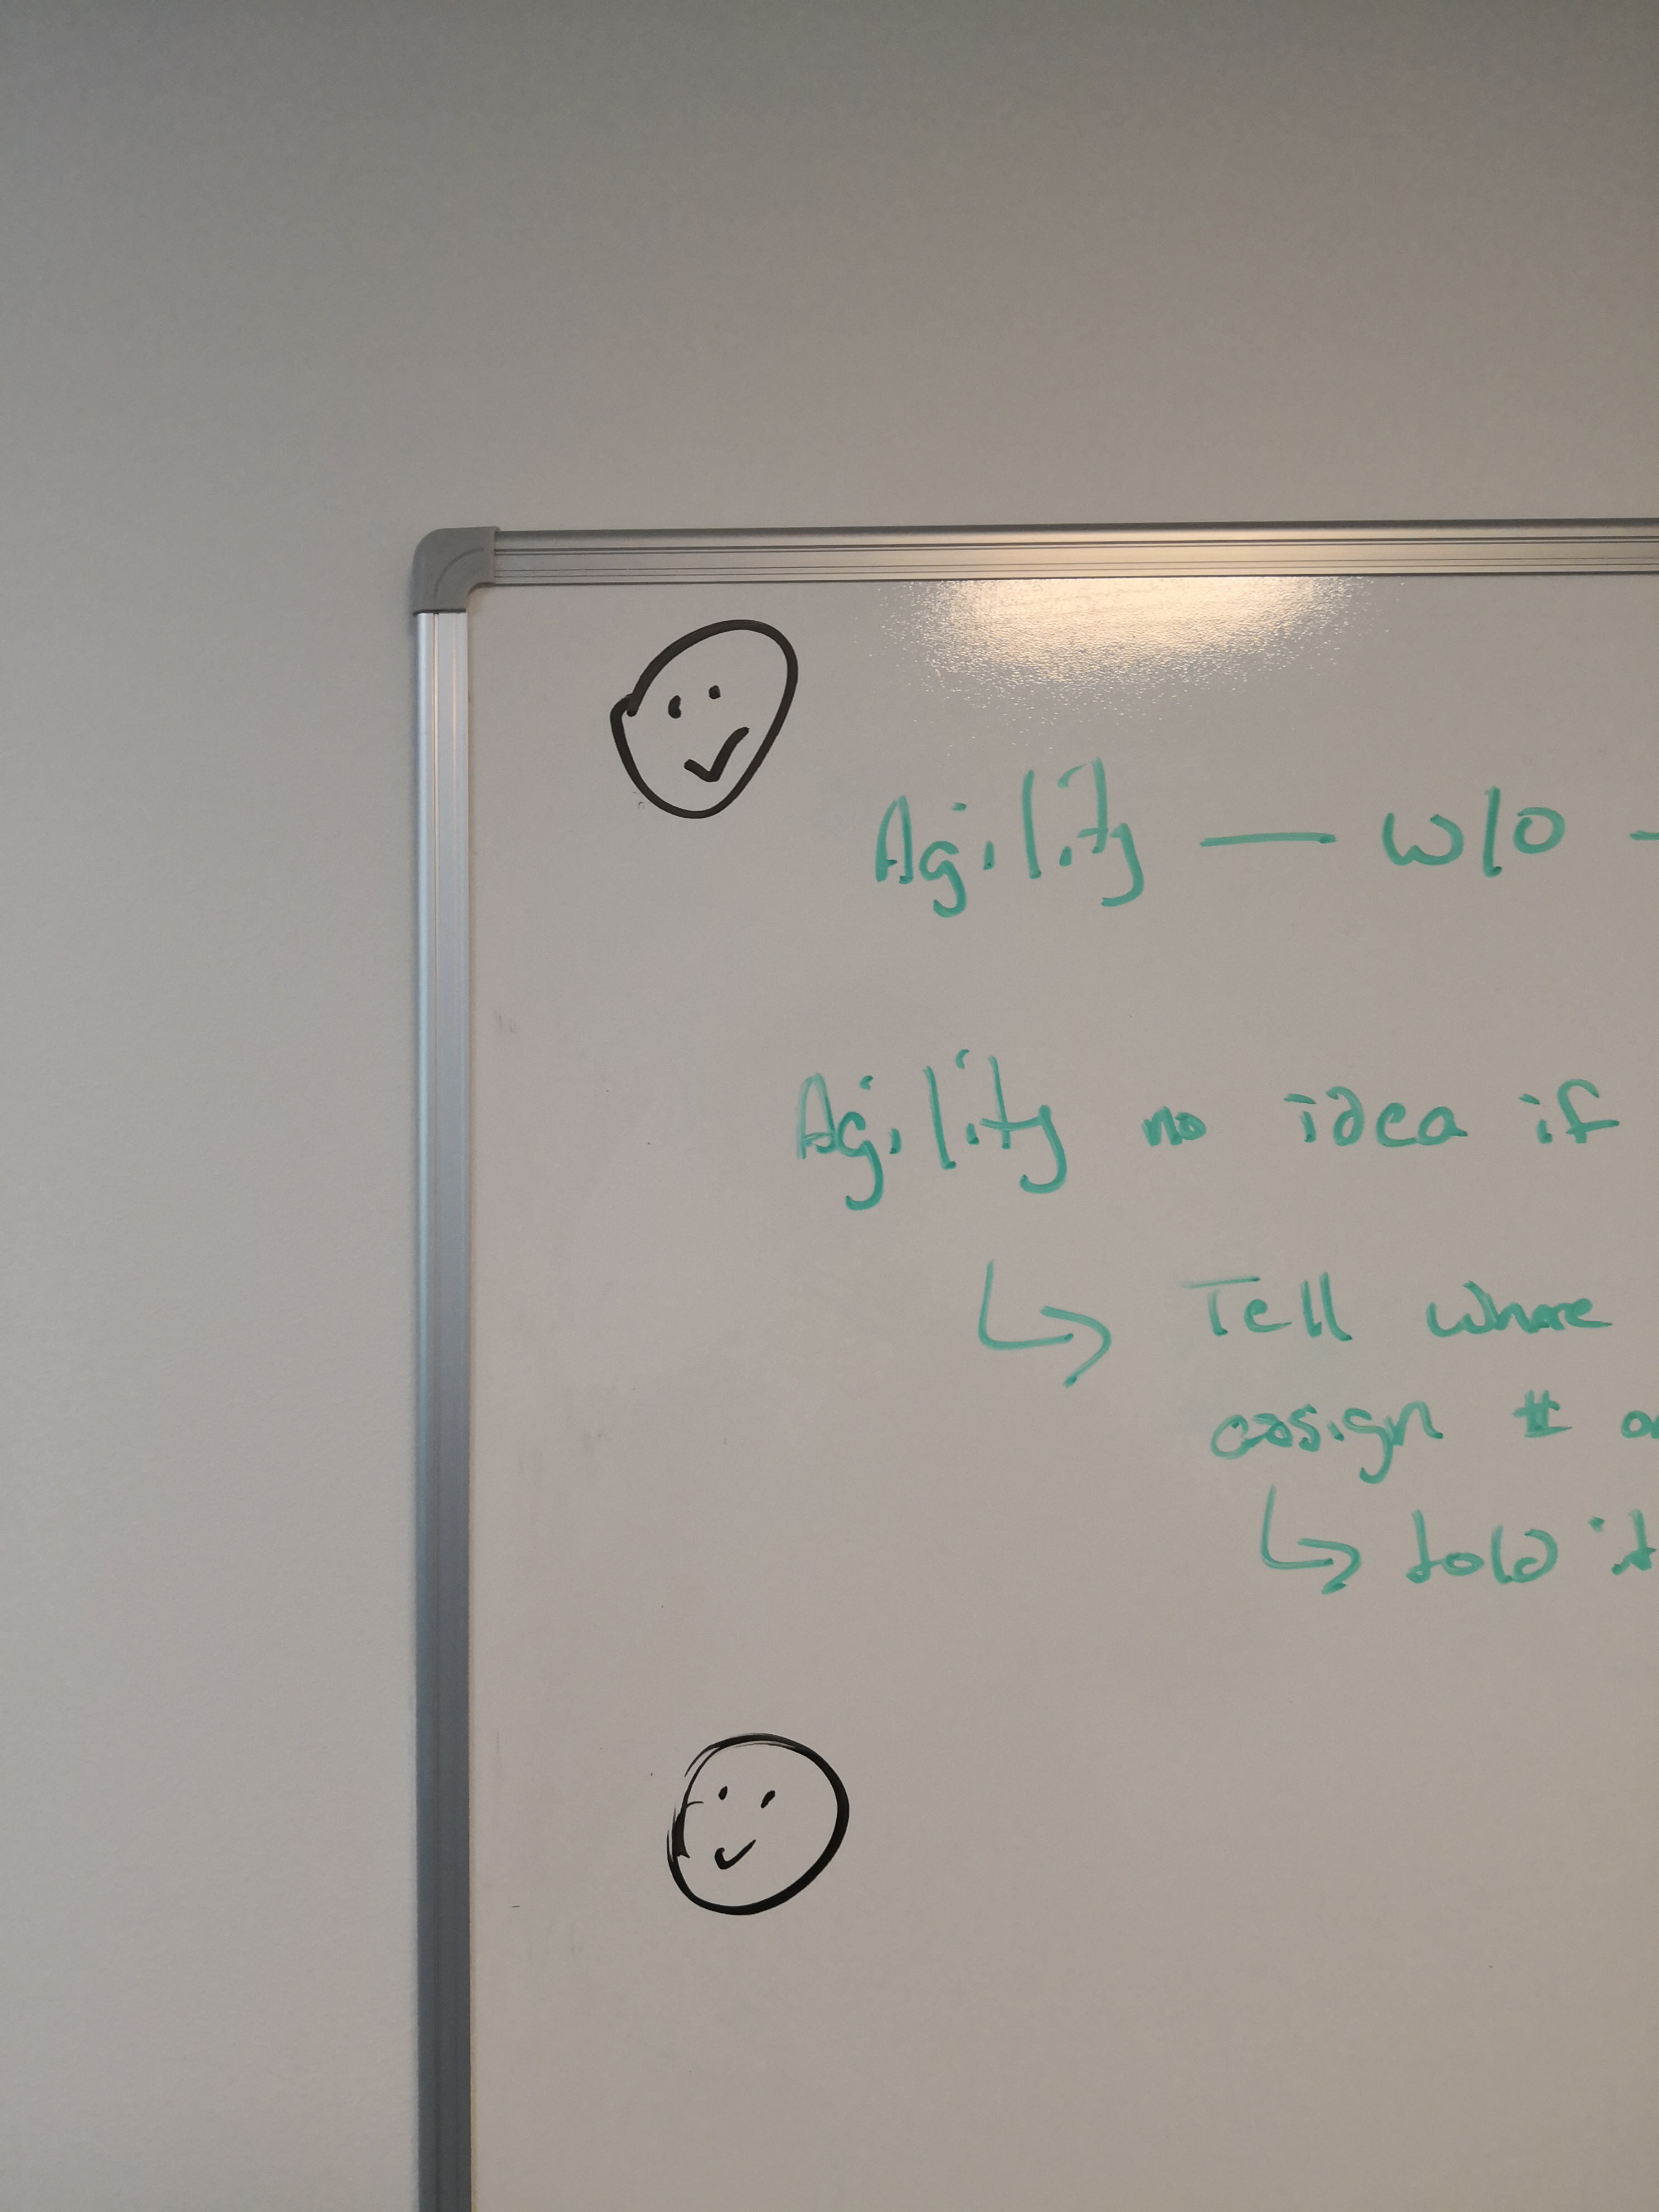 Agility — w/o -
Agility no idea if
↳ Tell where
assign #
↳ told it